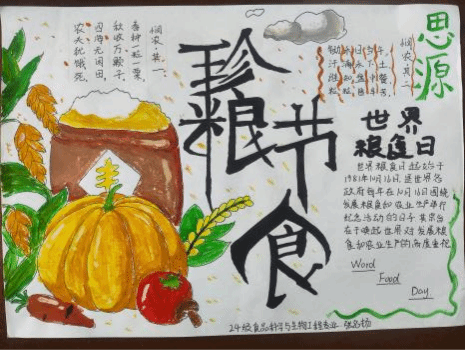 悯农 其一、
春种一粒粟，
秋收万颗子。
四海无闲田，
农夫犹饿死。
珍
粮
节
食
悯农 其二
锄禾日当午，
汗滴禾下土，
谁知盘中餐，
粒粒皆辛苦。
思
源
世界
粮食日
世界粮食日起始于
1981年10月16日，是世界各
政府每年在10月16日围绕
发展粮食和农业生产举行
纪念活动的日子，其宗旨
在于唤起世界对发展粮
食和农业生产的高度重视
Word
Food
Day
24级食品科学与生物工程专业